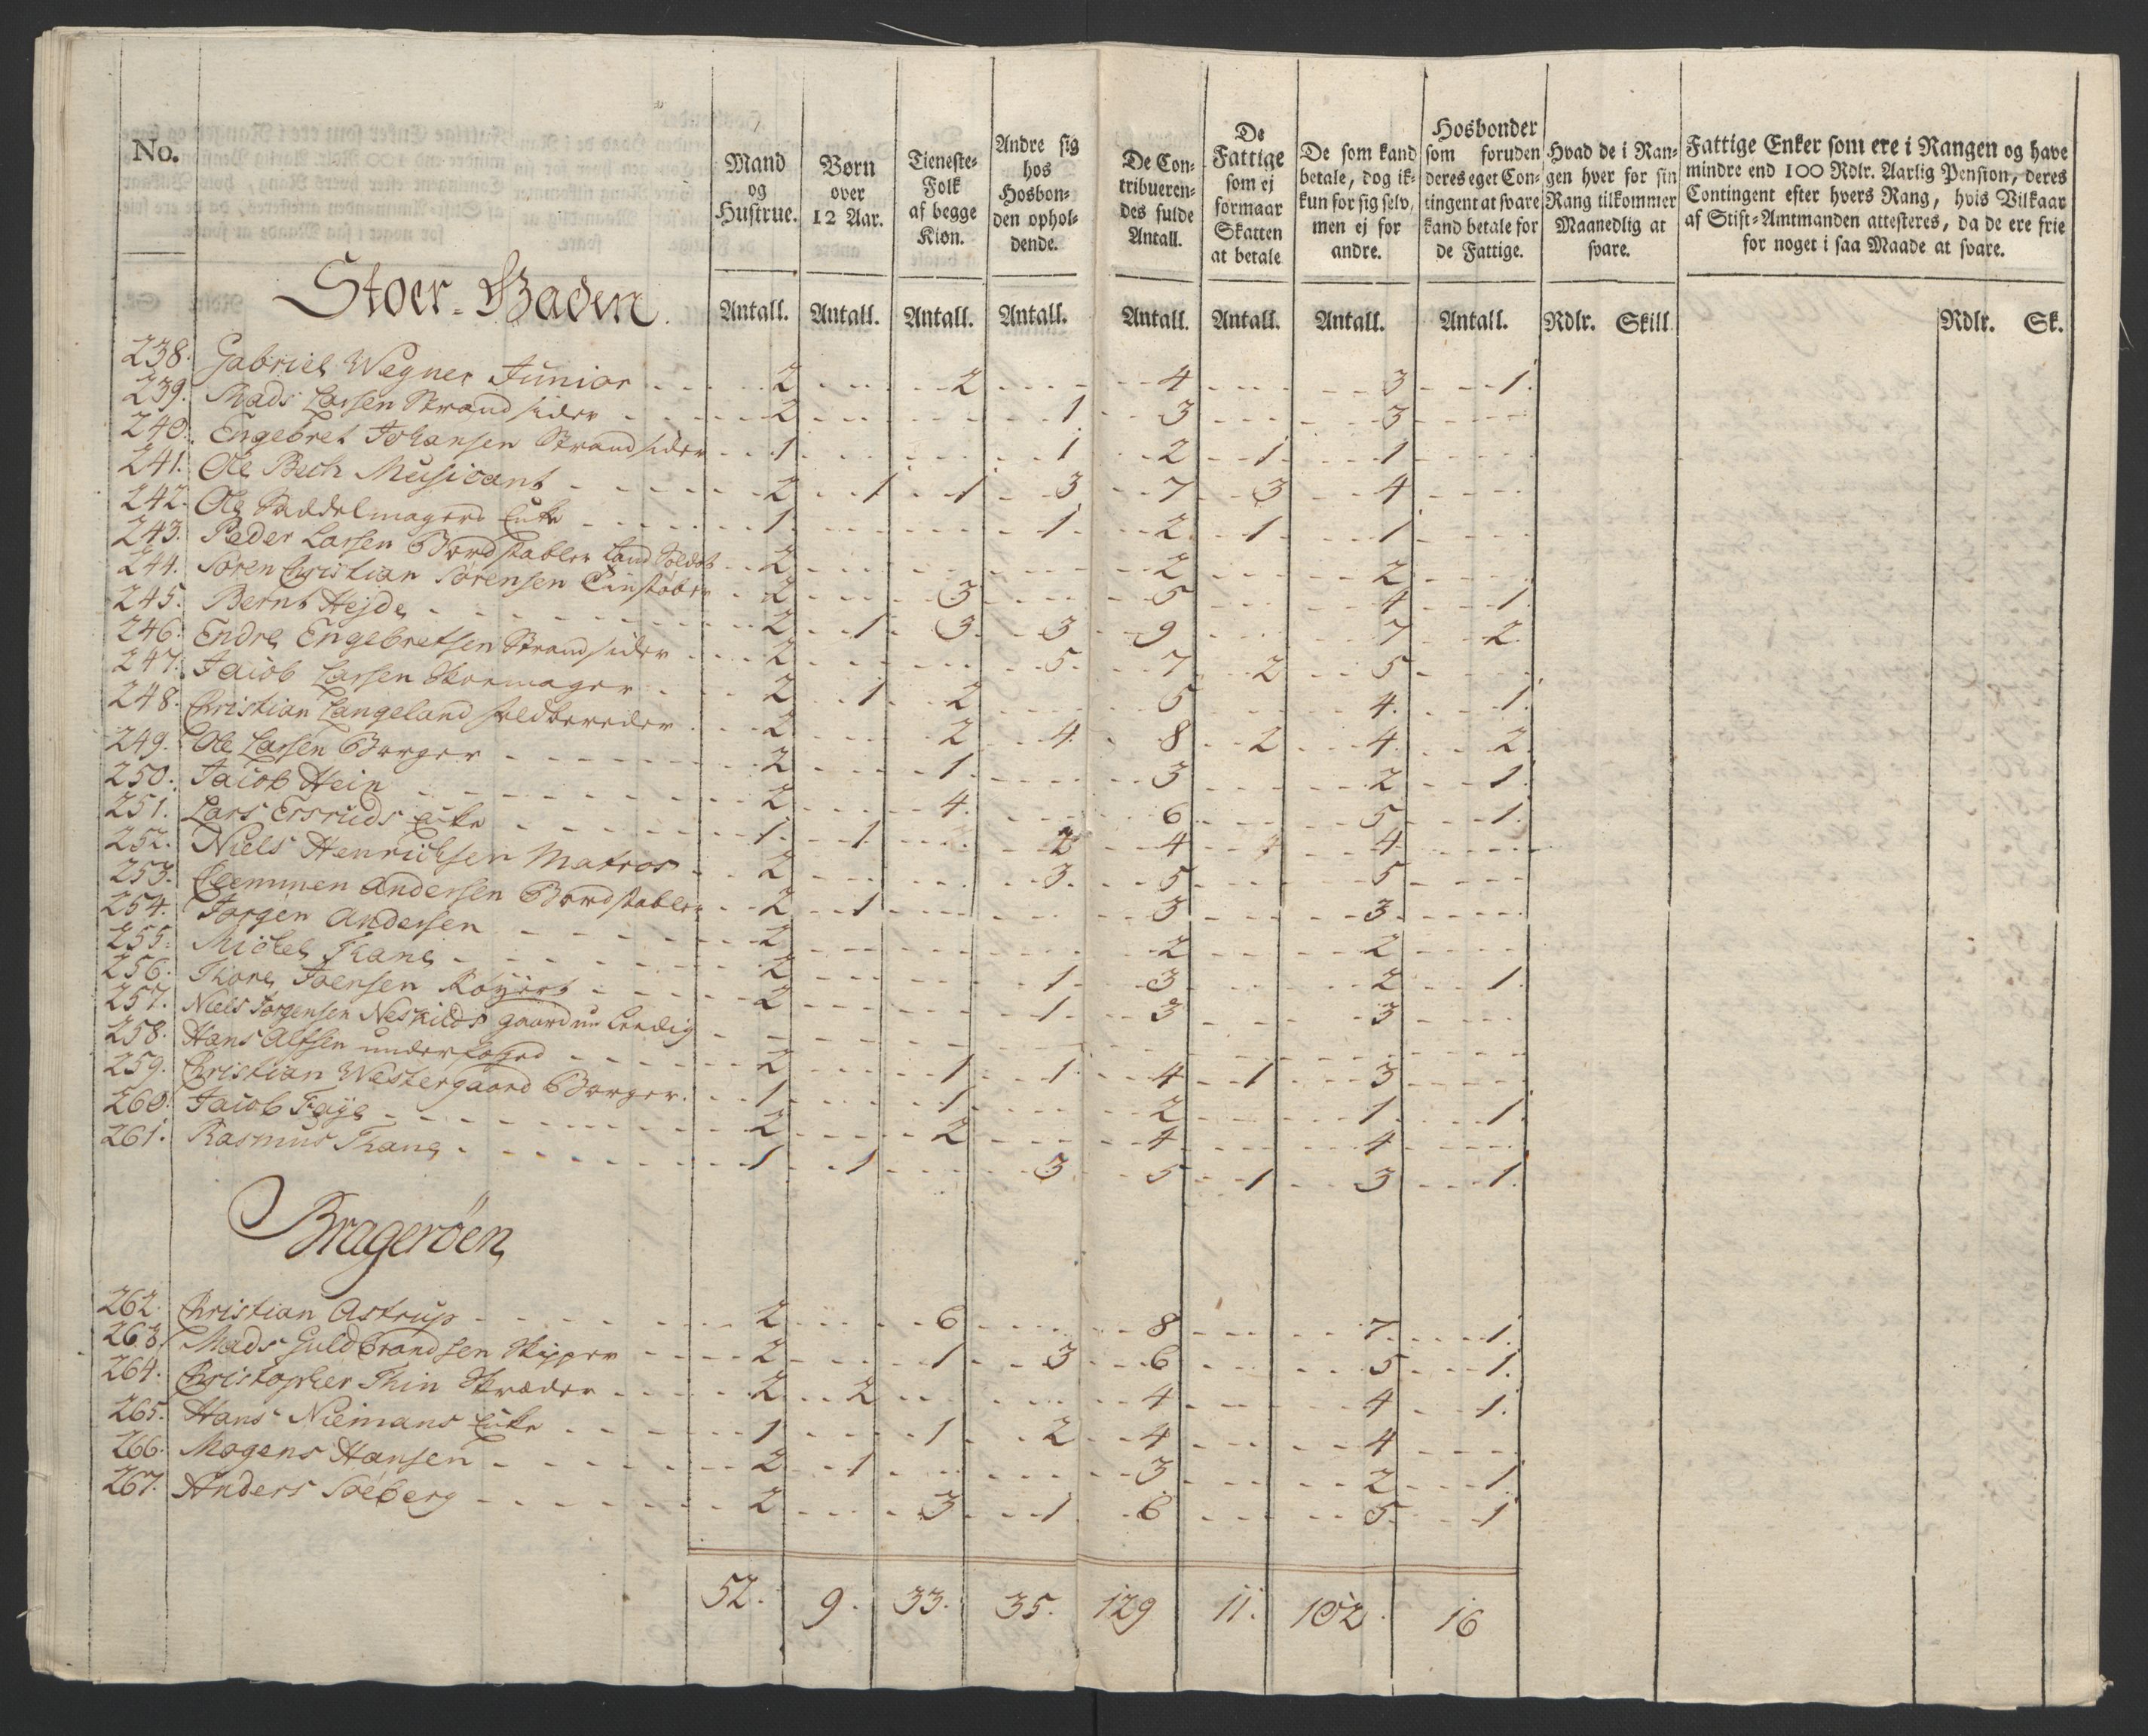 No.
Mand og Hustrue.
Børn over 12 Aar.
Tieneste-Folk af begge Kiøn.
Andre sig hos Hosbon-den ophol-dende.
De Con-tribueren-des fulde Antall.
De Fattige som ej formaar Skatten at betale
De som kand betale, dog ik-kun for sig selv, men ej for andre.
Hosbonder som foruden deres eget Con-tingent at svare kand betale for de Fattige.
Hvad de i Ran-gen hver for sin Rang tilkommer Maanedlig at svare.
Fattige Enker som ere i Rangen og have mindre end 100 Rdlr. Aarlig Pension, deres Contingent efter hvers Rang, hvis Vilkaar af Stift-Amtmanden attesteres, da de ere frie for noget i saa Maade at svare.
Antall. Antall. Antall. Antall. Antall. Antall. Antall. Antall. Rdlr. Skill Rdlr. Sk.
Stoer-Gaden.
238. Gabriel Wegner Junior 2 2 4 3 1.
239. Mads Larsen Strandsider 2 1 3 3
240. Engebret Johansen Strandsider 1 1 2 1 1
241. Ole Bech Musicant 2 1 1 3 7 3 4
242. Ole Saddelmagers Enke 1 1 2 1 1
243. Peder Larsen Bordstabler Land Soldat 2 2 2
244. Sören Christian Sörensen Tinstöber 2 3 5 4 1.
245. Bernt Hejde 2 1 3 3 9 7 2
246. Endre Engebretsen Strandsider 2 5 7 2 5
247. Jacob Larsen Skoemager 2 1 2 5 4 1.
248. Christian Langeland Feldbereder 2 2 4 8 2 4 2
249. Ole Larsen Borger 2 1 3 2 1
250. Jacob Hein 2 4 6 5 1.
251. Lars Ersruds Enke 1 1 2 4 4
252. Niels Henrichsen Matros 2 3 5 5
253. Clemmen Andersen Bordstabler 2 1 3 3
254. Jörgen Andersen 2 2 2
255. Michel Thane 2 1 3 2 1.
256. Thore Joensen Röyert 2 1 3 3
257. Niels Jörgensen Neskilds gaard un Leedig
258. Hans Alfsen underfoged 2 1 1 4 1 3
259. Christian Westergaard Borger. 1 1 2 1 1
260. Jacob Faye 2 2 4 4
261. Rasmus Thane 1 1 3 5 1 3 1.
Brageröen
262. Christian Astrup 2 6 8 7 1.
263. Mads Guldbrandsen Skipper 2 1 3 6 5 1.
264. Christopher Thin Skræder 2 2 4 4 1.
265. Hans Niemans Enke 1 1 2 4 4
266. Mogens Hansen 2 1 3 2 1
267. Anders Soeberg 2 3 1 6 5 1
52. 9. 33. 35. 129 11. 102. 16